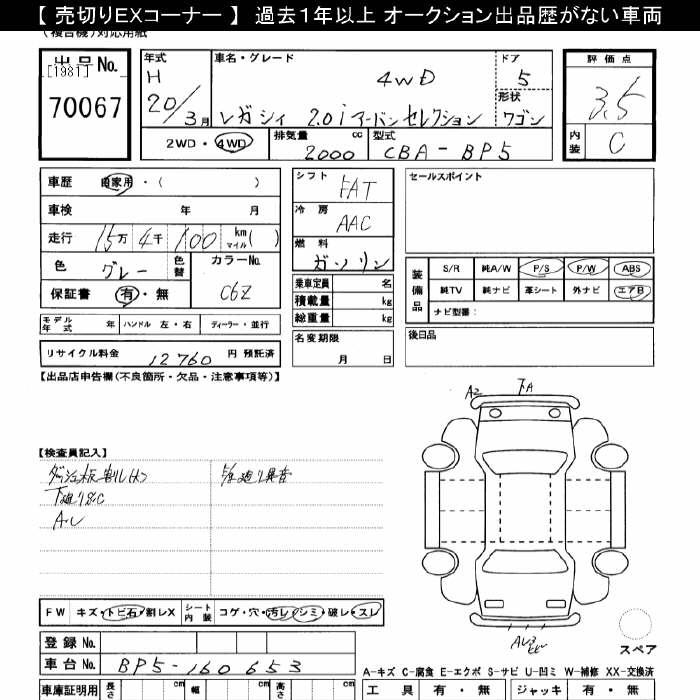 【 売切りEXコーナー 】 過去１年以上 オークション出品歴がない車両
(複合機)対応用紙
出品No.
[1981]
70067
年式
H
20/3月
車名・グレード
4WD
レガシィ 2.0i アーバンセレクション
ドア
5
形状
ワゴン
評価点
3.5
内装
C
2WD・4WD
排気量
cc
2000
型式
CBA-BP5
車歴 自家用・( )
車検 年 月
走行 15万 4千 100 km マイル( )
色 グレー
色替
カラーNo.
C6Z
保証書 有・無
モデル年式 年 ハンドル 左・右 ディーラー・並行
リサイクル料金 12760 円 預託済
シフト
FAT
冷房
AAC
燃料
ガソリン
乗車定員 名
積載量 kg
総重量 kg
名変期限
月 日
セールスポイント
装備品
S/R 純A/W P/S P/W ABS
純TV 純ナビ 革シート 外ナビ エアB
ナビ型番：
後日品
【出品店申告欄(不良箇所・欠品・注意事項等)】
【検査員記入】
下廻りSC
A・U
A2
下A
FW キズ・トビ石・割レX
シート内装 コゲ・穴・汚レ・シミ・破レ・スレ
登録No.
車台No. BP5-160653
スペア
A-キズ C-腐食 E-エクボ S-サビ U-凹ミ W-補修 XX-交換済
車庫証明用 長さ cm 幅 cm 高さ cm
工具 有・無 ジャッキ 有・無